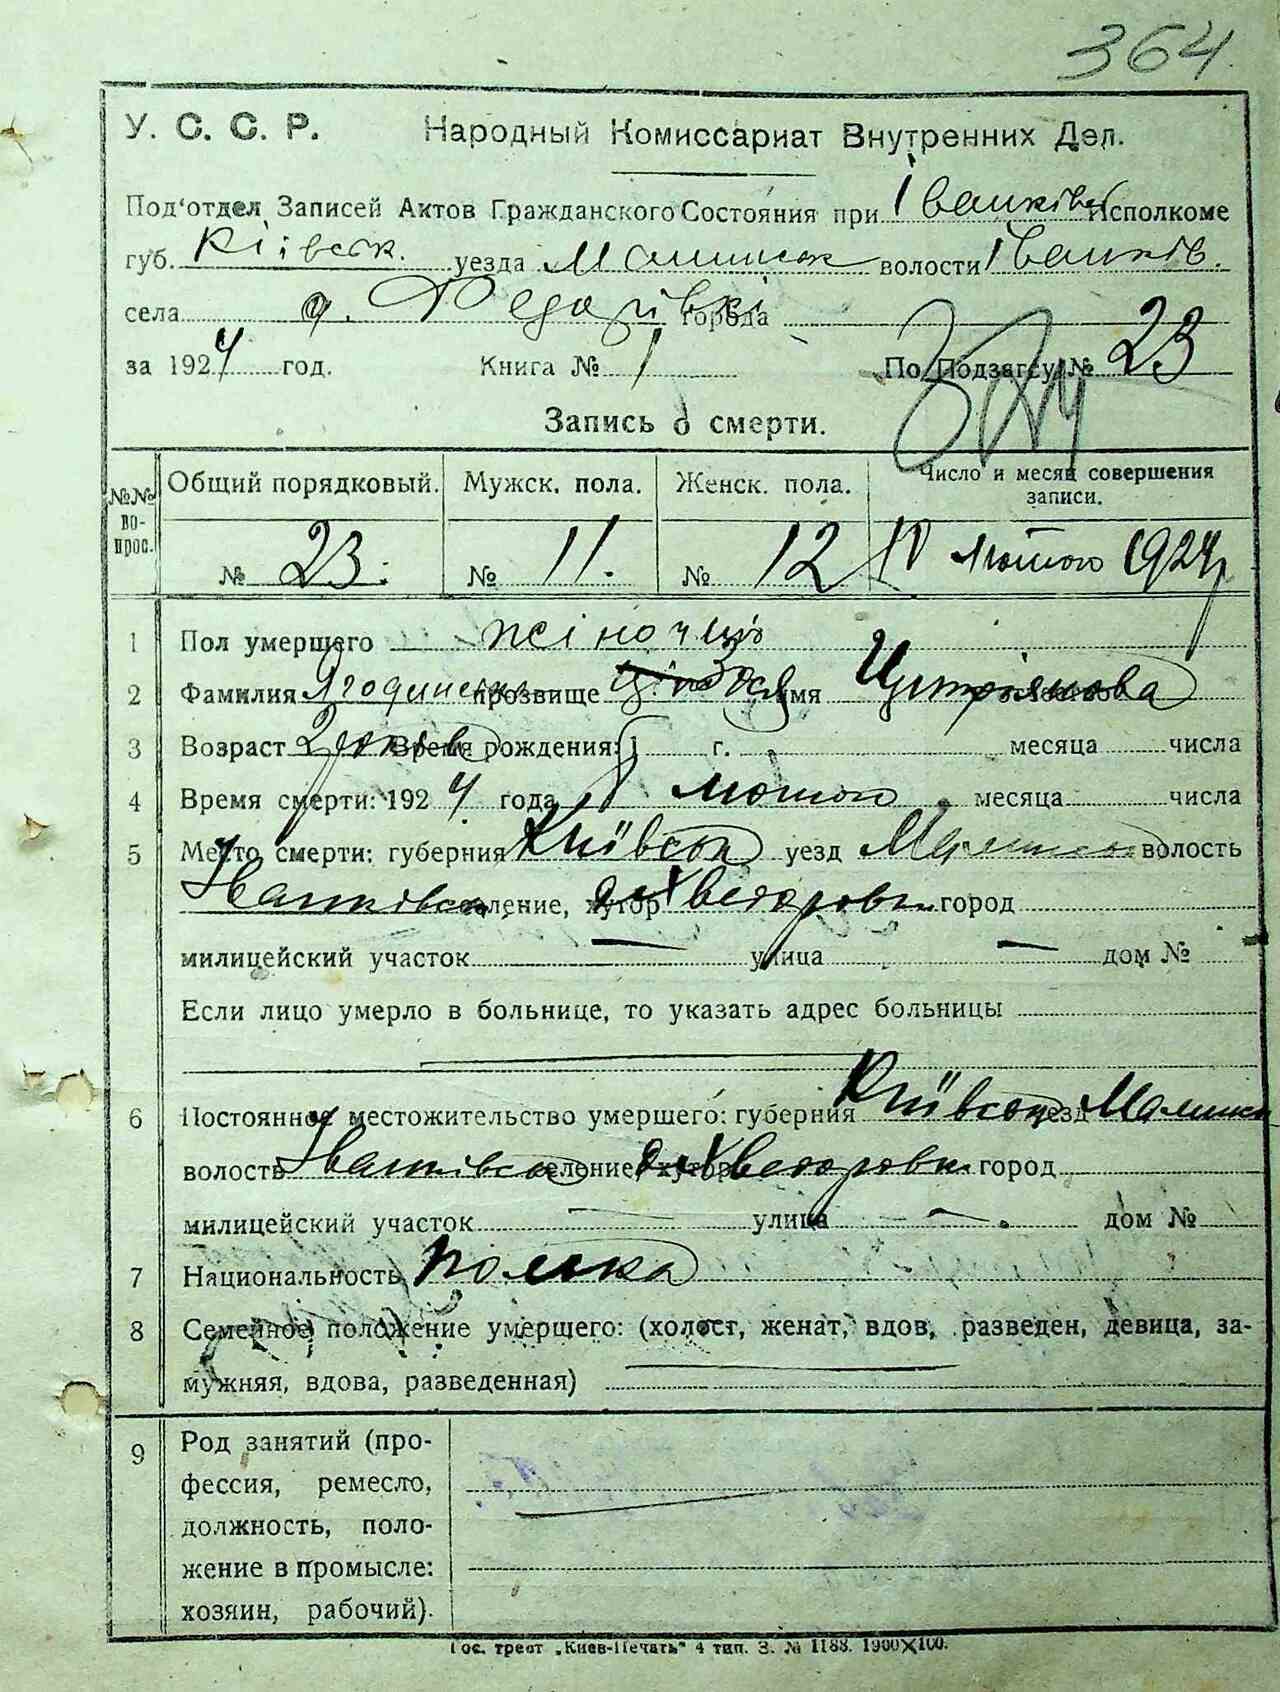 364
У. С. С. Р. Народный Комиссариат Внутренних Дел.
Под'отдел Записей Актов Гражданского Состояния при Іванків Исполкоме
губ. Київськ. уезда Малинськ волости Іванків.
села города
за 1924 год. Книга № 1 По Подзагсу № 23
Запись о смерти.
№№ вопрос. Общий порядковый. Мужск. пола. Женск. пола. Число и месяц совершения записи.
№ 23. № 11. № 12 лютого 1924
1 Пол умершего жіночий
2 Фамилия прозвище Имя
3 Возраст Время рождения: г. месяца числа
4 Время смерти: 1924 года лютого месяца числа
5 Место смерти: губерния Київськ уезд Малинськ волость
Іванківськ селение, хутор город
милицейский участок — улица — дом №
Если лицо умерло в больнице, то указать адрес больницы
6 Постоянное местожительство умершего: губерния Київськ уезд Малинськ
волость Іванківськ селение, хутор город
милицейский участок — улица — дом №
7 Национальность полька
8 Семейное положение умершего: (холост, женат, вдов, разведен, девица, за-
мужняя, вдова, разведенная)
9 Род занятий (про-
фессия, ремесло,
должность, поло-
жение в промысле:
хозяин, рабочий).
Гос. трест „Киев-Печать" 4 тип. З. № 1188. 1900×100.